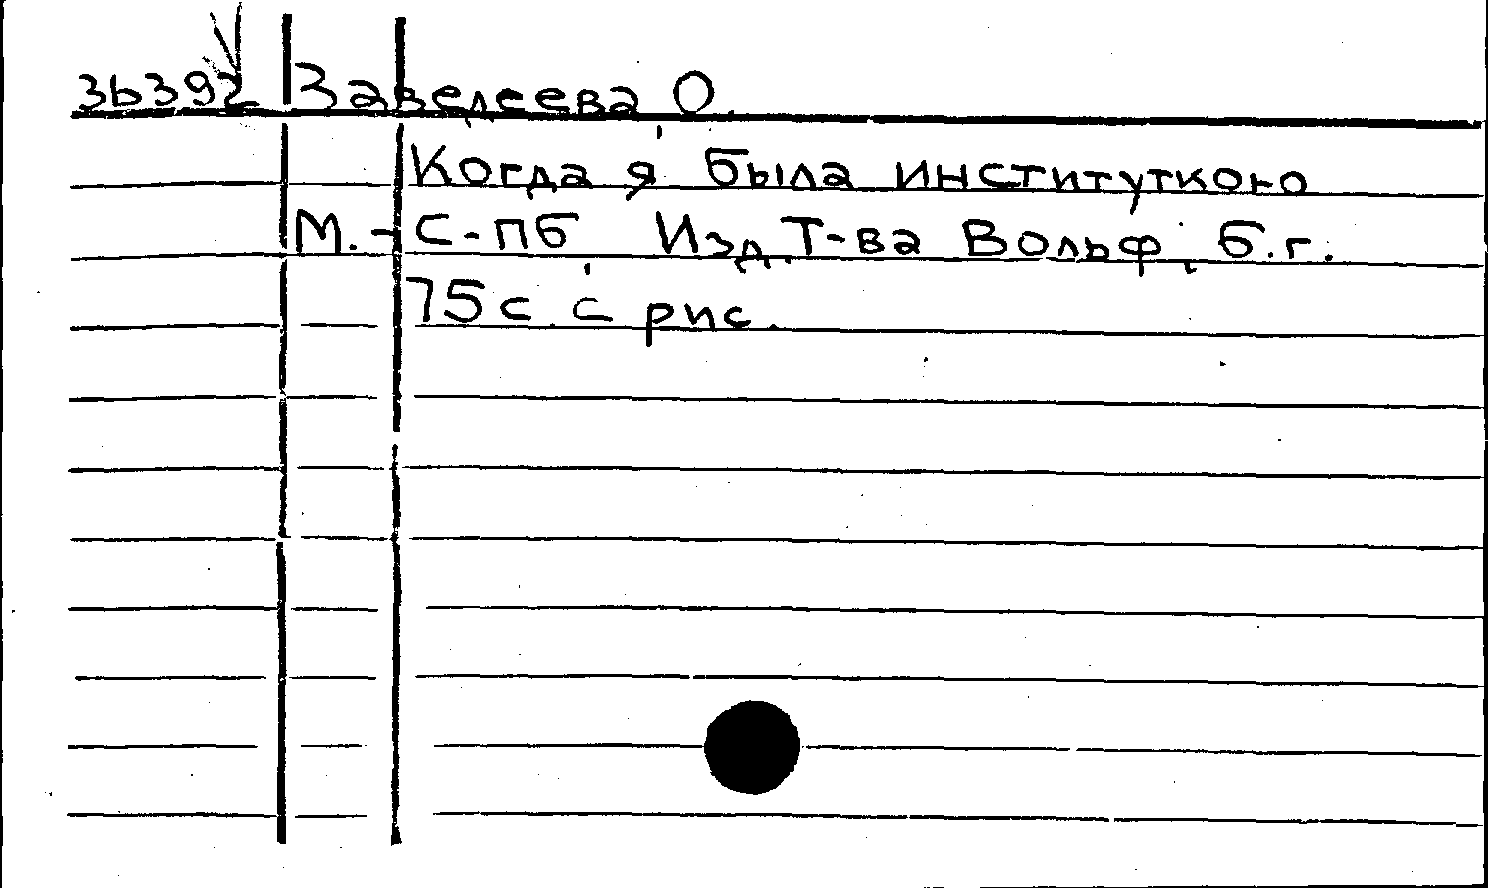 3ь392 Завелеева, О.
Когда я была институткою
М.-С-Пб, Изд. Т-ва Вольф, б.г.
75с. с рис.